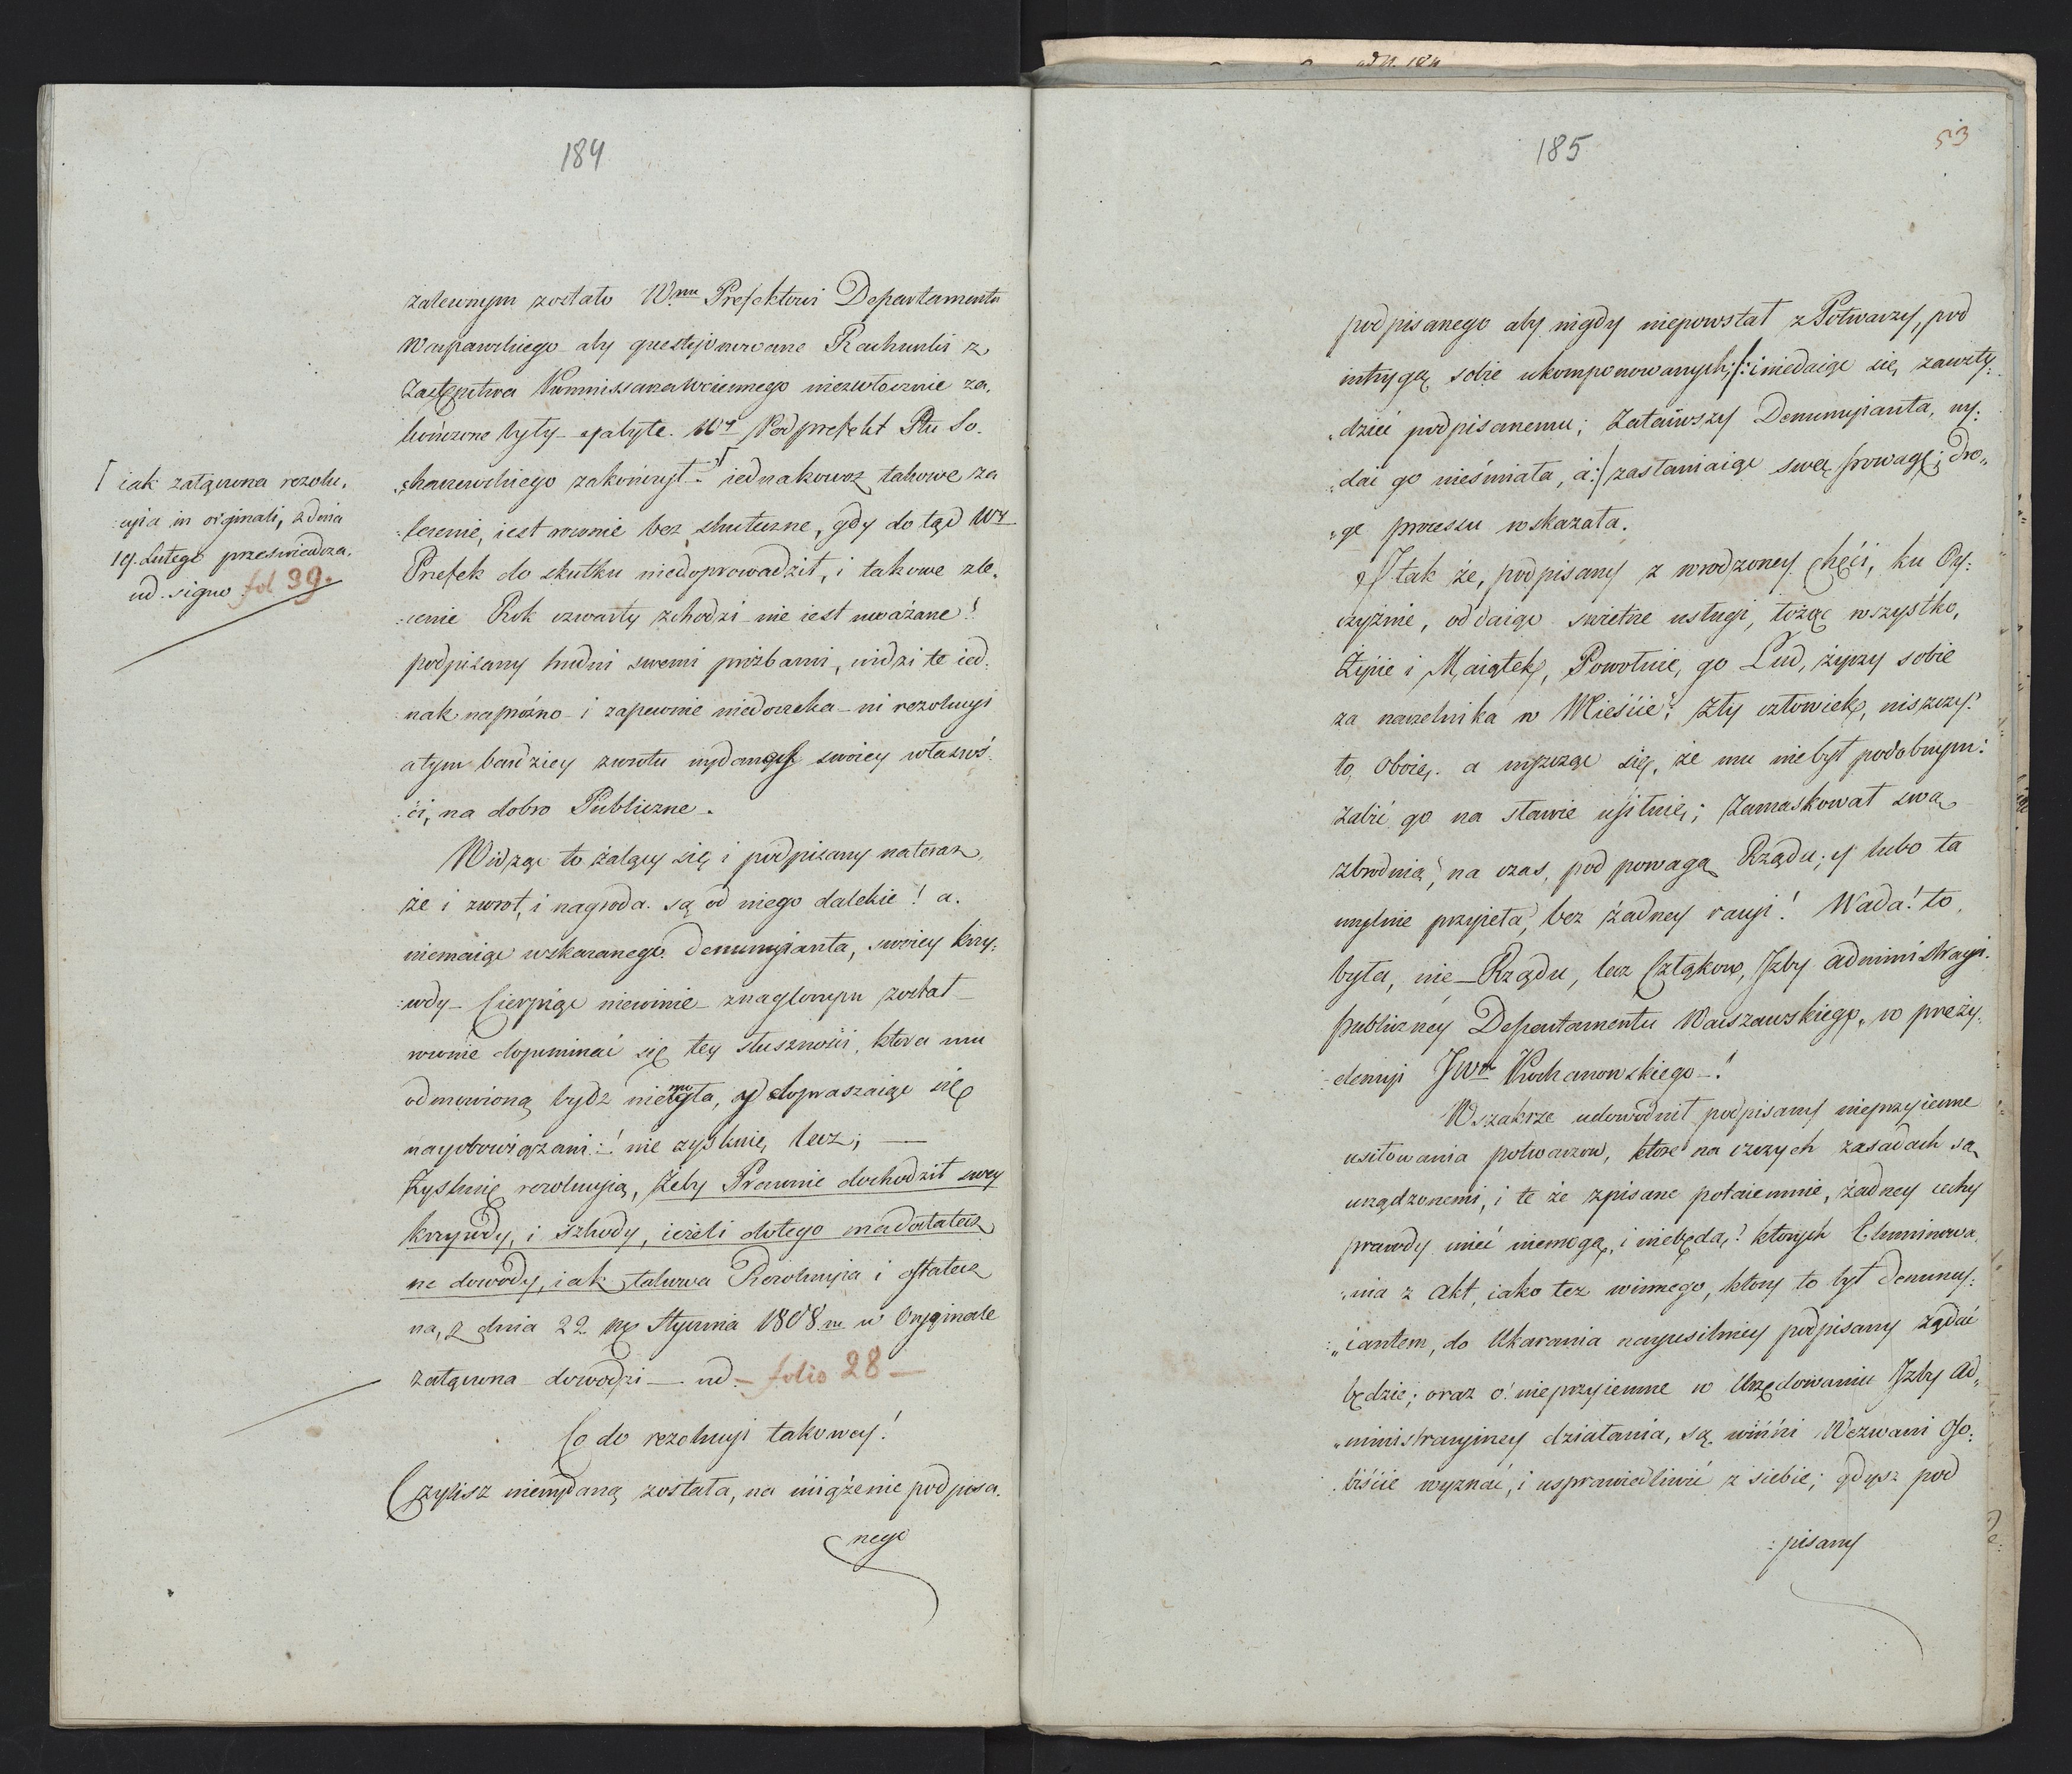 184
zalewnym zostało W.mu Prefektowi Departamentu
Warszawskiego aby questyonowane Rachunki z
Zastępstwa Kommissarza Woiennego niezwłocznie za,
kończone były – gdabyte. Wy Podprefekt Ptu So-
„chaczewskiego zakończył – iednakowoż takowe za
:lecenie, iest rownie bez skuteczne, gdy do tąd Wy
Prefek do skutku niedoprowadził, i takowe zle,
:cenie Rok czwarty zchodzi – nie iest uważane!
podpisany trudni swemi prożbami, widzi te ied:
nak napróżno – i zapewnie niedoczeka – ni rezolucyi
atym bardziey zwrotu wydanych swoiey własnoś:
:ci, na dobro Publiczne –
Widząc to żalący się i podpisany nateraz,
że i zwrot, i nagroda są od niego dalekie! a.
niemaiąc wskazanego Denuncyanta, swoiey krzy:
:wdy – Cierpiąc niewinnie – znaglonym został –
rownie dopominać się tey słuszności, ktora mu
odmowioną bydz niemogła, y dopraszaiąc się
nayobowiązani: ! nie zyskuie, lecz; —
Zyskuię rezolucyią, Żeby Prawnie dochodził swey
krzywdy, i szkody, ieżeli dotego madostatecz
ne dowody, iak takowa Rezolucyia i ostatecz
na, z dnia 22 Stycznia 1808 ru w Oryginale
załączona dowodzi — ud – folio 28 —
Co do rezolucyi takowey!
Czylisz niewydaną została, na uiążenie podpisa.
nego
⌈ iak załączona rezolu,
:cyia in originali, z dnia
19. Lutego przeswiadcza.
ud. signo fol 39.
185
53
podpisanego aby nigdy niepowstał z Potwarzy, pod
intrygą sobie ukomponowanych; /: i niedaiąc się, zawsty:
„dzić podpisanemu; Zataiwszy Denuncyianta, wy:
„dać go nieśmiała, á:/ zasłaniaiąc swą powagę; dro„
„gę processu wskazała.
I tak że, podpisany z wrodzoney chęci, ku Oy:
czyźnie, oddaiąc swietne usługi, łożąc wszystko,
Życie i Maiątek, Powołuie, go Lud, życzy sobie
za naczelnika w Mieście! Zły człowiek, niszczy!
to, Oboię. a mszcząc się, że mu niebył podobnym:
Zabić go na sławie usilnie; Zamaskował swą
zbrodnią, na czas, pod powagą Rządu; y lubo ta
mylnie przyięta, bez żadney racyi! Wada! to,
była, nie – Rządu, lecz Członkow, Izby administracyi.
publiczney Departamentu Warszawskiego, w prezy:
:dencyi JWo Kochanowskiego –!
Wszakrze udowodnił podpisany nieprzyiemne
usiłowania potwarzow, ktore na czczych zasadach są
urządzonemi, i te że zpisane potaiemnie, żadney cechy
prawdy mieć niemogą, i niebędą! ktorych Eluminowa,
„nia z Akt, iako też winnego, ktory to był denuncy:
„iantem, do Ukarania nayusilniey podpisany żądać
będzie; oraz o nieprzyiemne w Urzędowaniu Izby Ad„
„ministracyiney działania, są winni Wezwani Oso:
biście wyznać, i usprawiedliwić z siebie; gdysz pod
: pisany